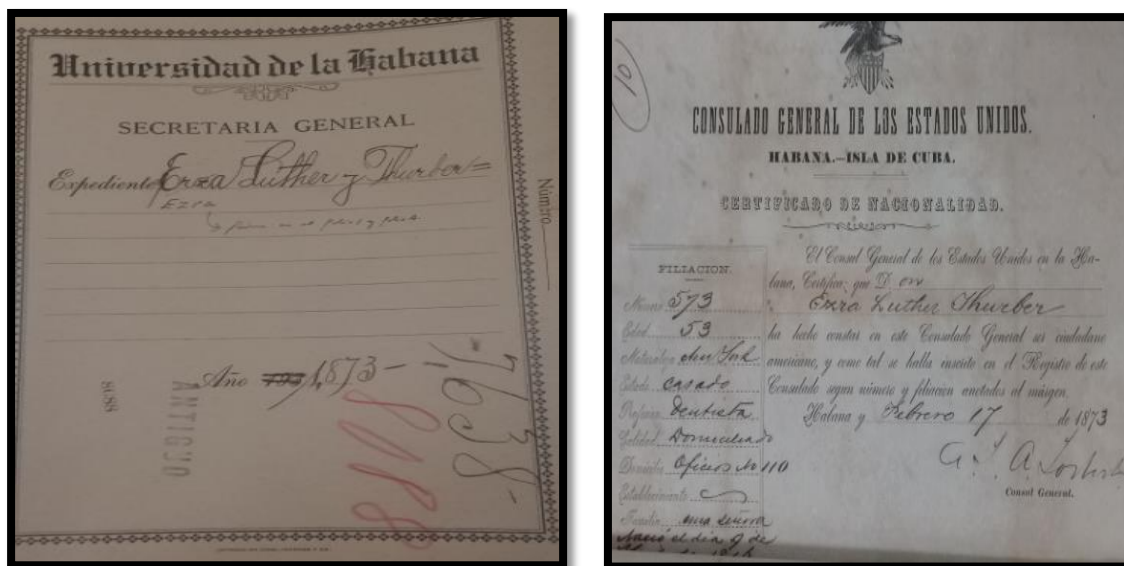 Universidad de la Habana
SECRETARIA GENERAL
Expediente Erza Luther y Thurber=
Ezra
Número
Año 1,873-
8188
ANTIGUO
7638-
8188
10
CONSULADO GENERAL DE LOS ESTADOS UNIDOS.
HABANA.-ISLA DE CUBA.
CERTIFICADO DE NACIONALIDAD.
FILIACION.
Número 573
Edad 53
Naturaleza New York
Estado casado
Profesion Dentista
Calidad Domiciliado
Domicilio Oficios No 110
Establecimiento
Familia una señora
Nació el dia 9 de
El Consul General de los Estados Unidos en la Ha-
bana, Certifica: que D. on
Ezra Luther Thurber
ha hecho constar en este Consulado General ser ciudadano
americano, y como tal se halla inscrito en el Registro de este
Consulado segun número y filiacion anotados al márgen.
Habana y Febrero 17 de 1873
Consul General.